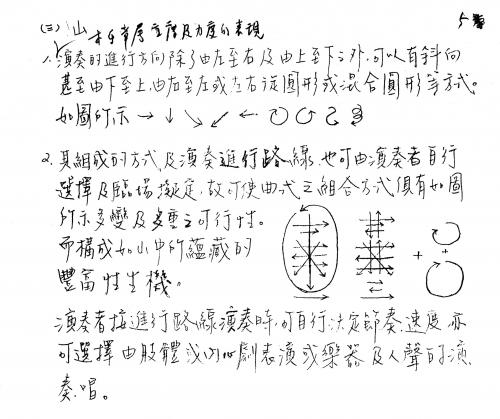 (三)山
1.演奏的進行方向除了由左至右及由上至下之外,可以有斜向
甚至由下至上,由右至左或左右從圓形或混合圓形等方式。
如圖所示→↓↘↙←
2.其組成的方式及演奏進行路線,也可由演奏者自行
選擇及臨場擬定,故可使曲式之組合方式俱有如圖
所示多變及多重之可行性。
而構成如山中所蘊藏的
豐富性生機。
演奏者按進行路線演奏時,可自行決定節奏、速度,亦
可選擇由肢體或內心劇表演或樂器及人聲的演
奏唱。